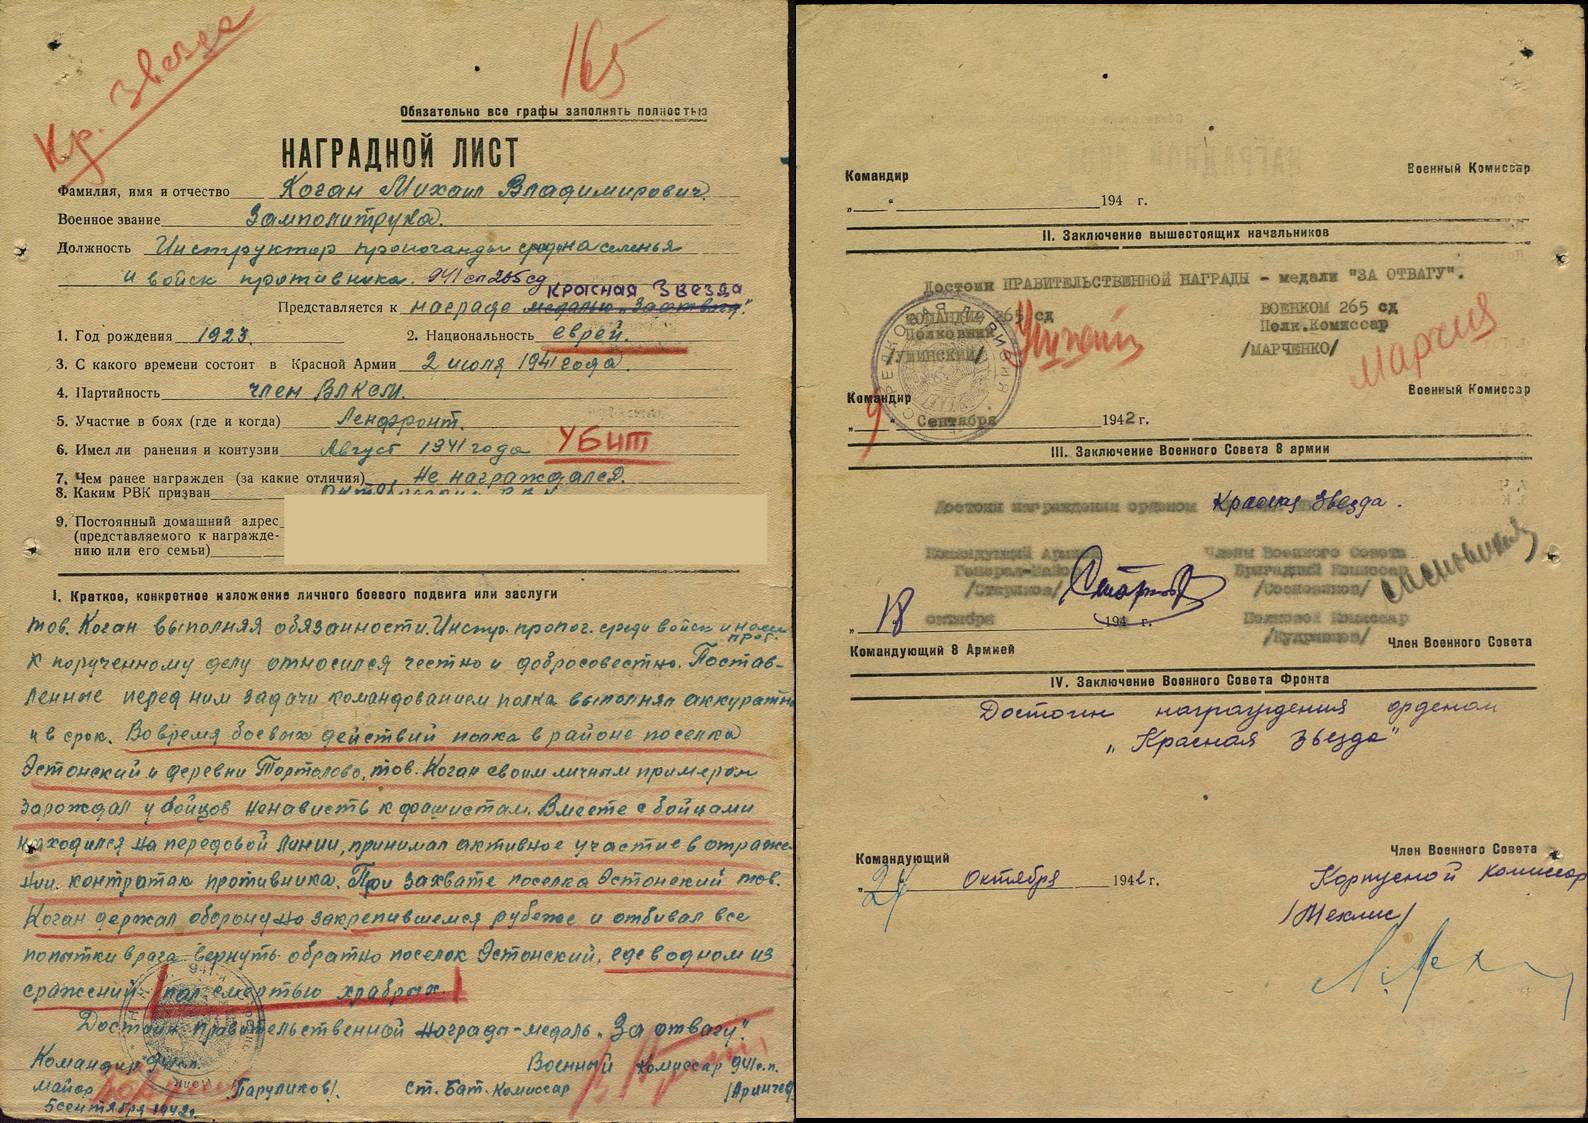 Кр. звезда
165
Обязательно все графы заполнять полностью
НАГРАДНОЙ ЛИСТ
Фамилия, имя и отчество Коган Михаил Владимирович.
Военное звание Замполитрука.
Должность Инструктор пропоганды среди населенья
и войск противника. 941 сп 265 сд
Красная Звезда
Представляется к награде медалью "За отвагу".
1. Год рождения 1923. 2. Национальность еврей.
3. С какого времени состоит в Красной Армии 2 июля 1941 года.
4. Партийность член ВЛКСМ.
5. Участие в боях (где и когда) Ленфронт.
6. Имел ли ранения и контузии Август 1941 года УБИТ
7. Чем ранее награжден (за какие отличия) не награждался.
8. Каким РВК призван
9. Постоянный домашний адрес
(представляемого к награжде-
нию или его семьи)
I. Краткое, конкретное изложение личного боевого подвига или заслуги
тов. Коган выполняя обязанности. Инстр. пропог. среди войск и насел. прот.
к порученному делу относился честно и добросовестно. Постав-
ленные перед ним задачи командованием полка выполнял аккуратно
и в срок. Во время боевых действий полка в районе поселка
Эстонский и деревни Тортолово, тов. Коган своим личным примером
зарождал у бойцов ненависть к фашистам. Вместе с бойцами
находился на передовой линии, принимал активное участие в отраже-
нии контратак противника. При захвате поселка Эстонский тов.
Коган держал оборону на закрепившемся рубеже и отбивал все
попытки врага вернуть обратно поселок Эстонский, где в одном из
сражений пал смертью храбрых.
Достоин правительственной награды-медаль "За отвагу".
Командир 941 с.п. Военный Комиссар 941 с.п.
майор Ст. Бат. Комиссар
5 сентября 1942г.
Командир Военный Комиссар
„ “ 194 г.
II. Заключение вышестоящих начальников
Достоин ПРАВИТЕЛЬСТВЕННОЙ НАГРАДЫ - медали "ЗА ОТВАГУ".
КОМАНДИР 265 сд ВОЕНКОМ 265 сд
Полковник Полк.Комиссар
/УШИНСКИЙ/ /МАРЧЕНКО/
Командир Военный Комиссар
„9“ Сентября 1942 г.
III. Заключение Военного Совета 8 армии
Достоин награждения орденом Красная Звезда.
Командующий Армией Члены Военного Совета
Генерал-Майор Бригадный Комиссар
/Стариков/ /Сосновиков/
„18 октября 194 г. Полковой Комиссар
Командующий 8 Армией Член Военного Совета
IV. Заключение Военного Совета Фронта
Достоин награждения орденом
„Красная Звезда"
Командующий Член Военного Совета
Октября 1942 г. Корпусной Комиссар
/Мехлис/